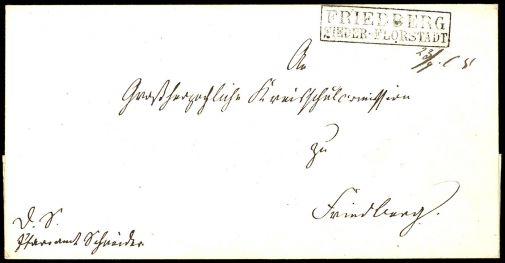 FRIEDBERG
NIEDER-FLORSTADT
An
Großherzogliche Kreisschulcommission
zu
Friedberg.
D. S.
Pfarramt